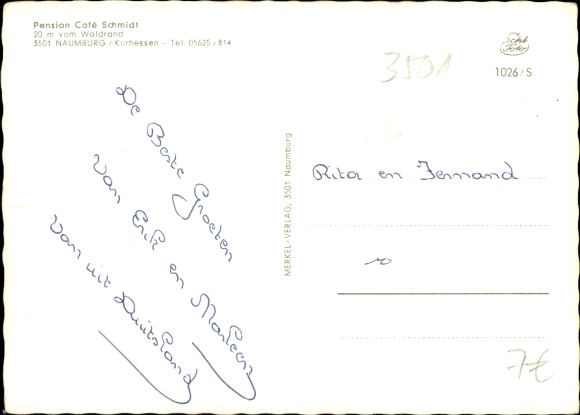 Pension Café Schmidt
20 m vom Waldrand
3501 NAUMBURG / Kurhessen - Tel. 05625 / 814
3501
1026/S
De Beste Groeten
van Erik en Marleen
van uit Duitsland
MERKEL-VERLAG, 3501 Naumburg
Rita en Fernand
7€